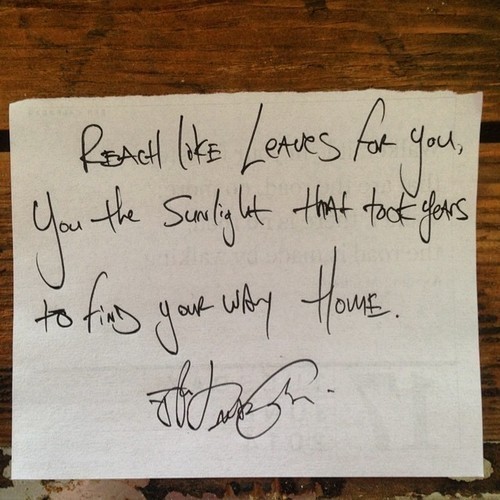 REACH like LEAVES for you,
You the Sunlight that took years
to find your way Home.